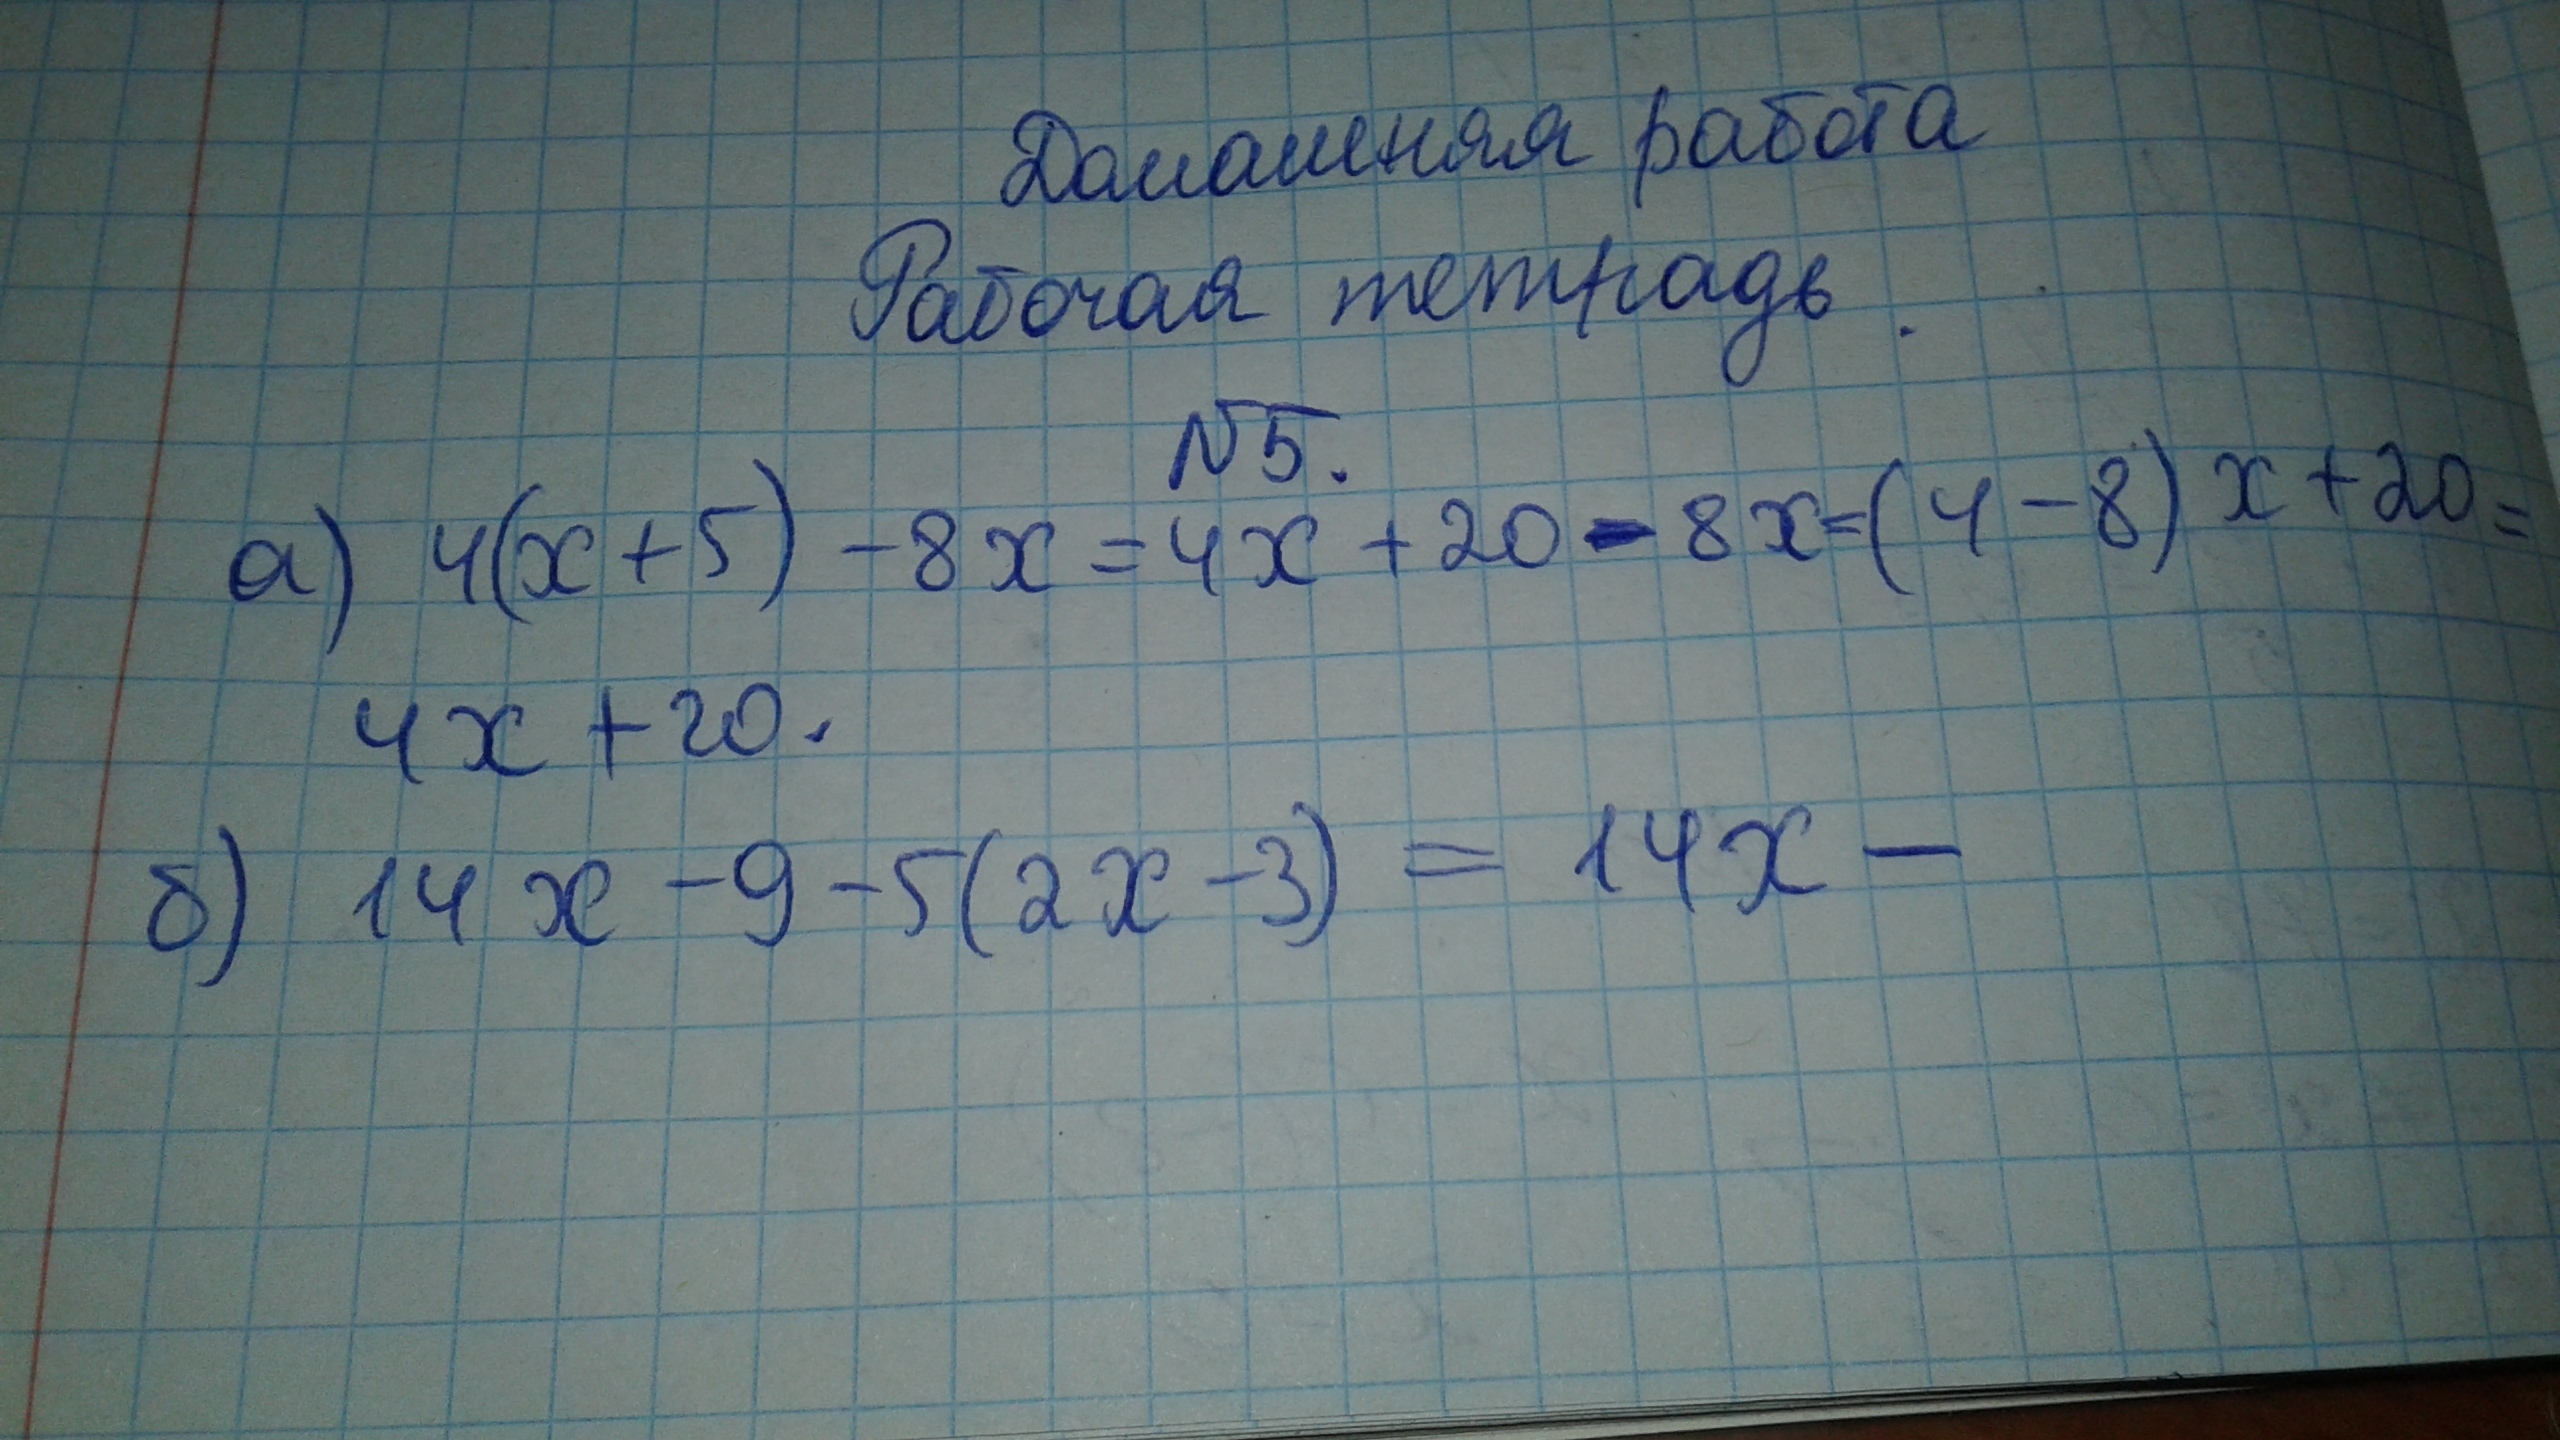 Домашняя работа
Рабочая тетрадь.
№5.
а) 4(x+5)-8x=4x+20-8x=(4-8)x+20=
4x+20.
б) 14x-9-5(2x-3)=14x-